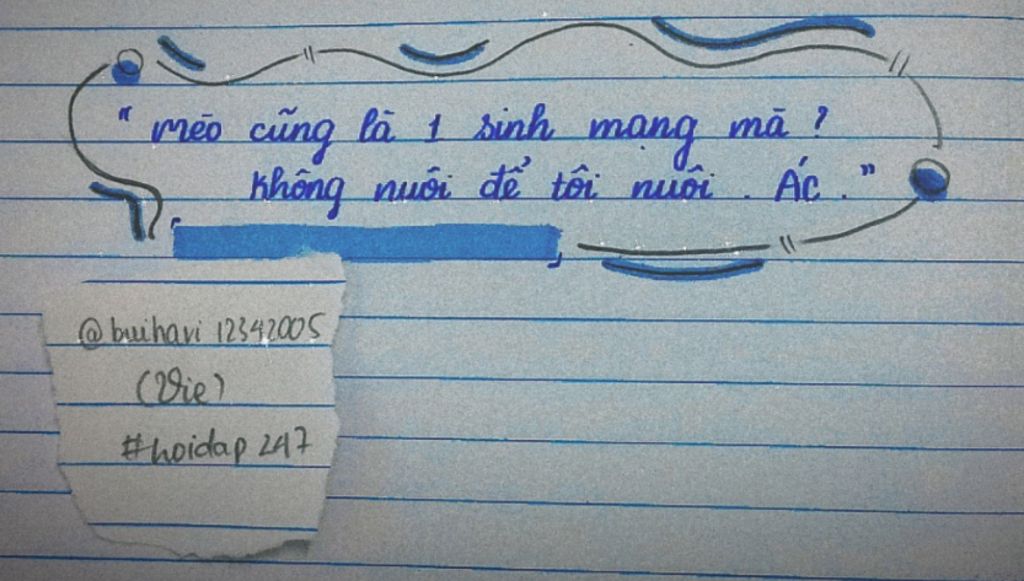 “ mèo cũng là 1 sinh mạng mà ?
không nuôi để tôi nuôi . Ác . ”
@buihavi 12342005
(Vie)
#hoidap 247